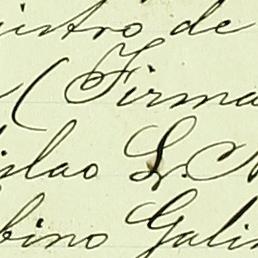 istro de
( Firma
islao L. N
bino Gali